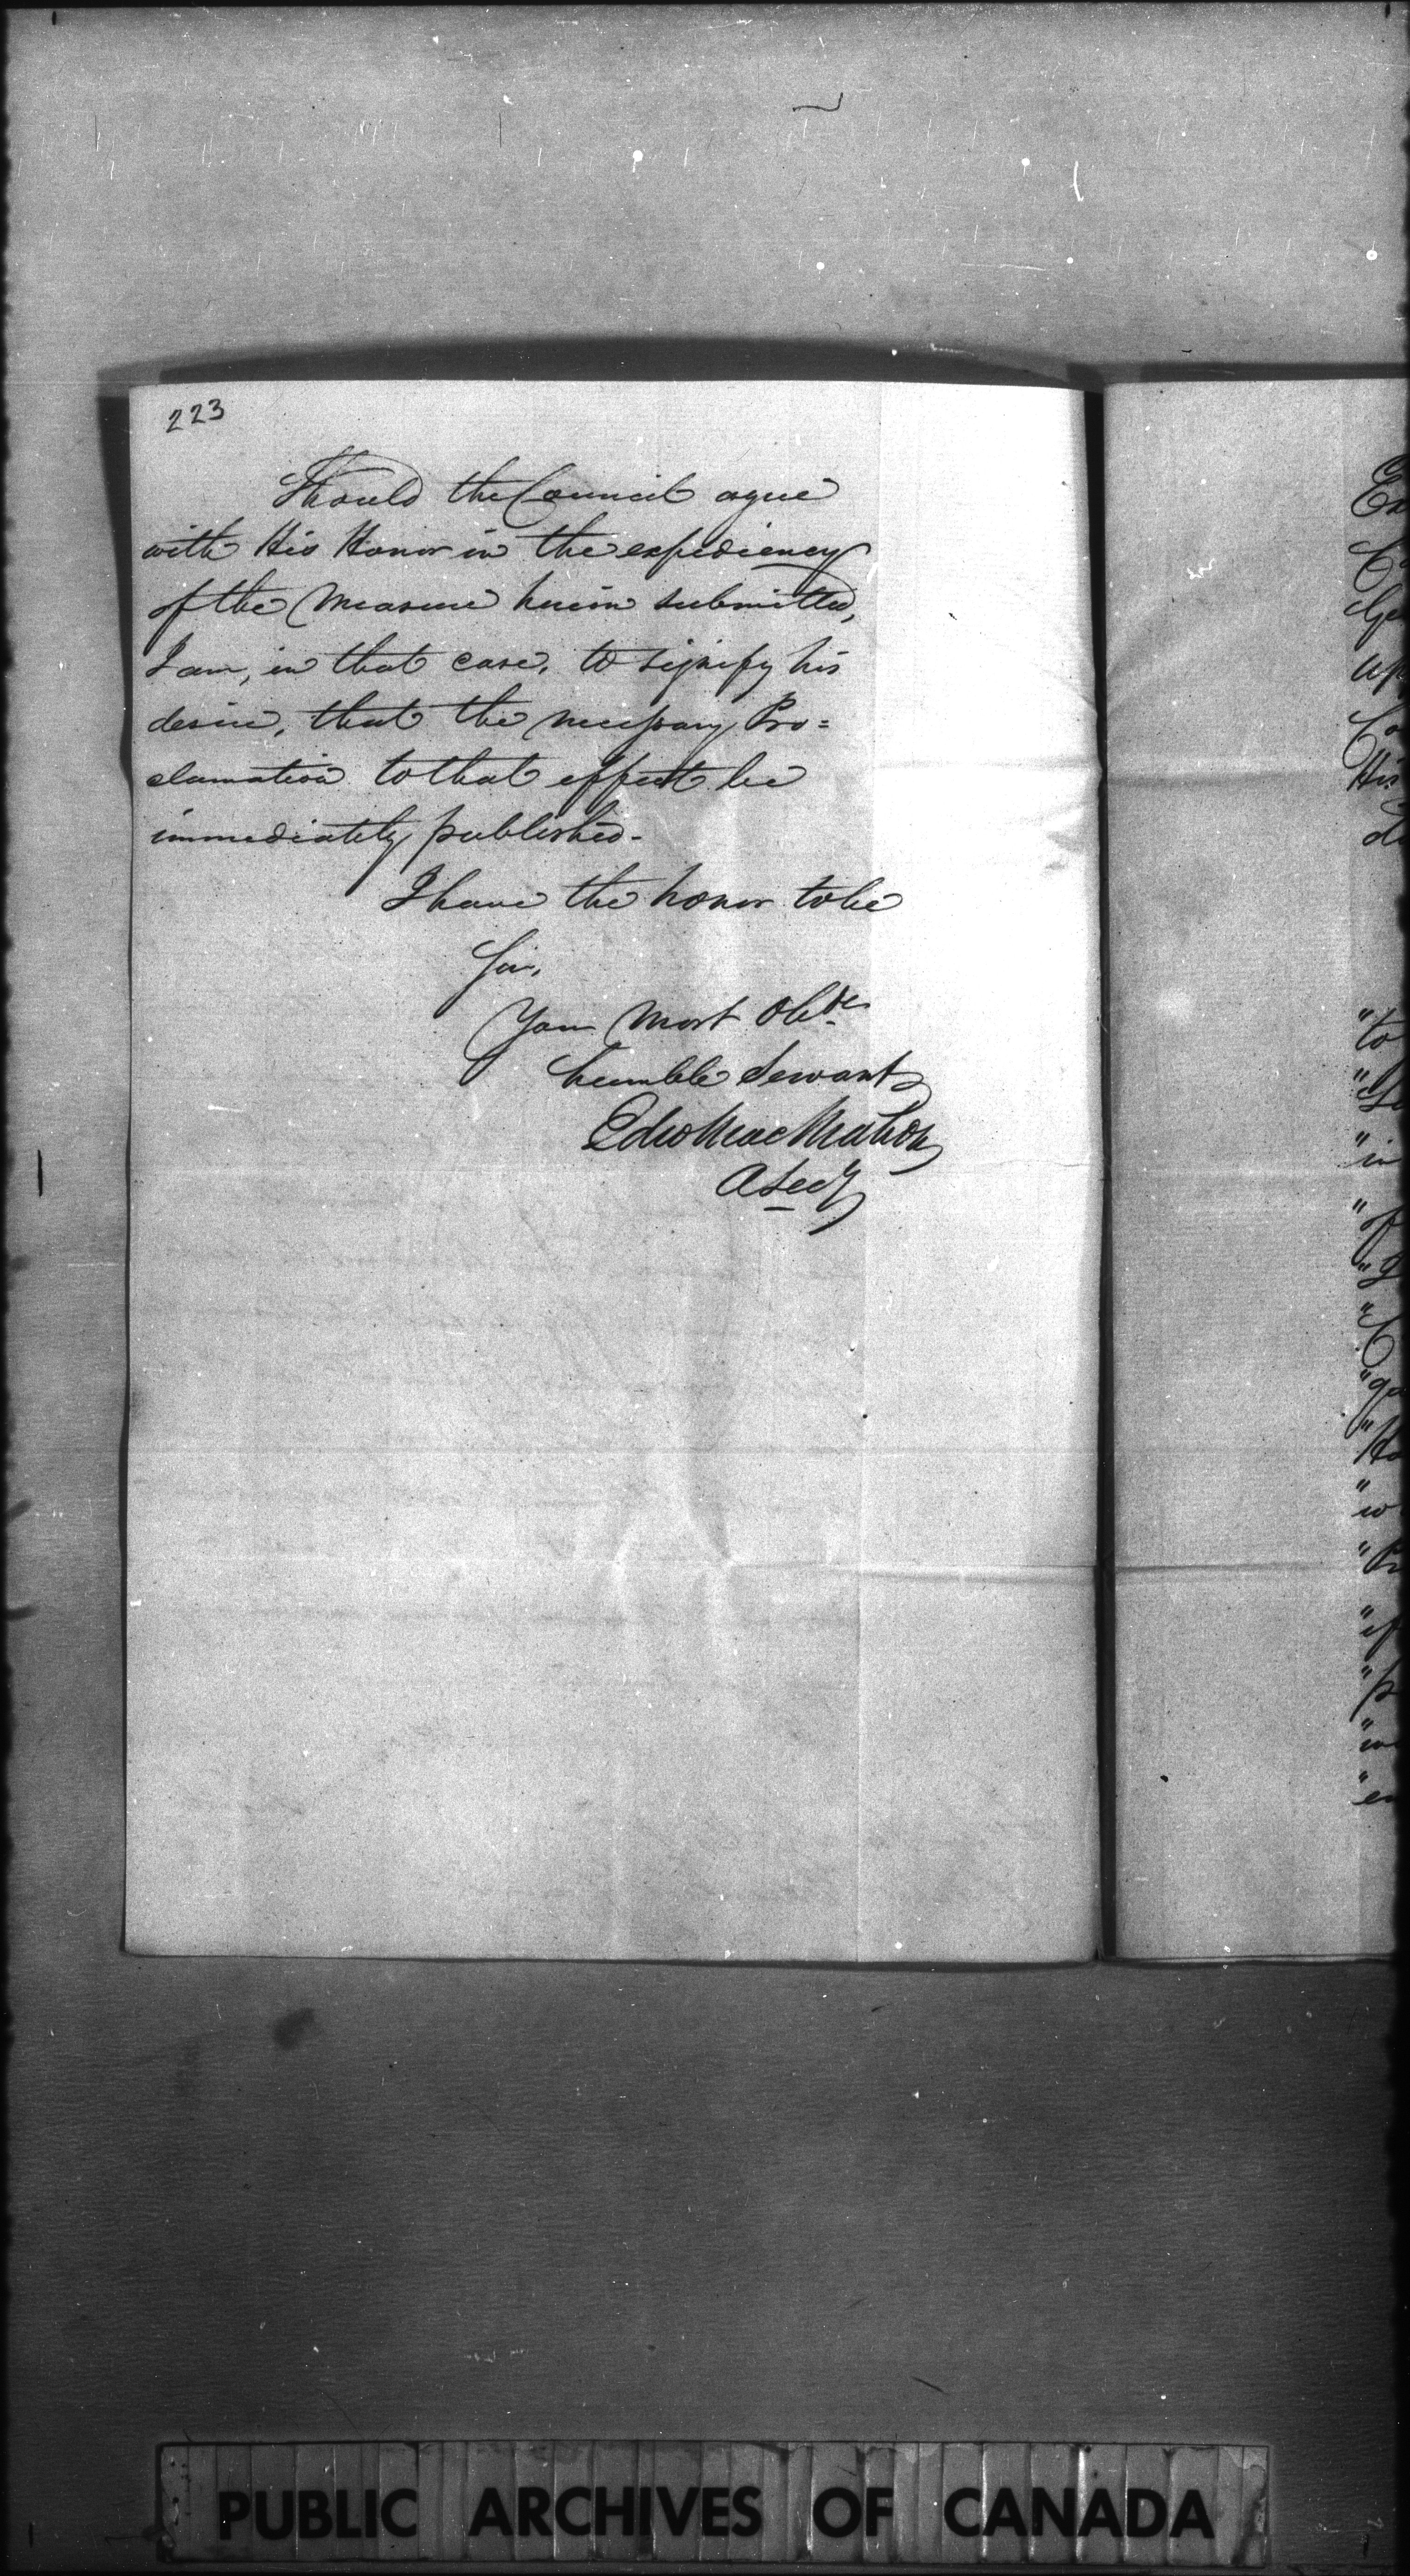 223
Should the Council agree
with His Honor in the expediency
of the Measure herein submitted,
I am, in that case, to signify his
desire, that the necessary Pro=
clamation to that effect be
immediately published-
I have the honor to be
Sir,
Your Most Obdt
humble Servant
Edw MacMahon
A Secy
Ex
Ge
up
Co
His
"to
"Se
"in
"of
"C
"ga
"Ho
"w
"Pr
"if
"p
"en
PUBLIC ARCHIVES OF CANADA